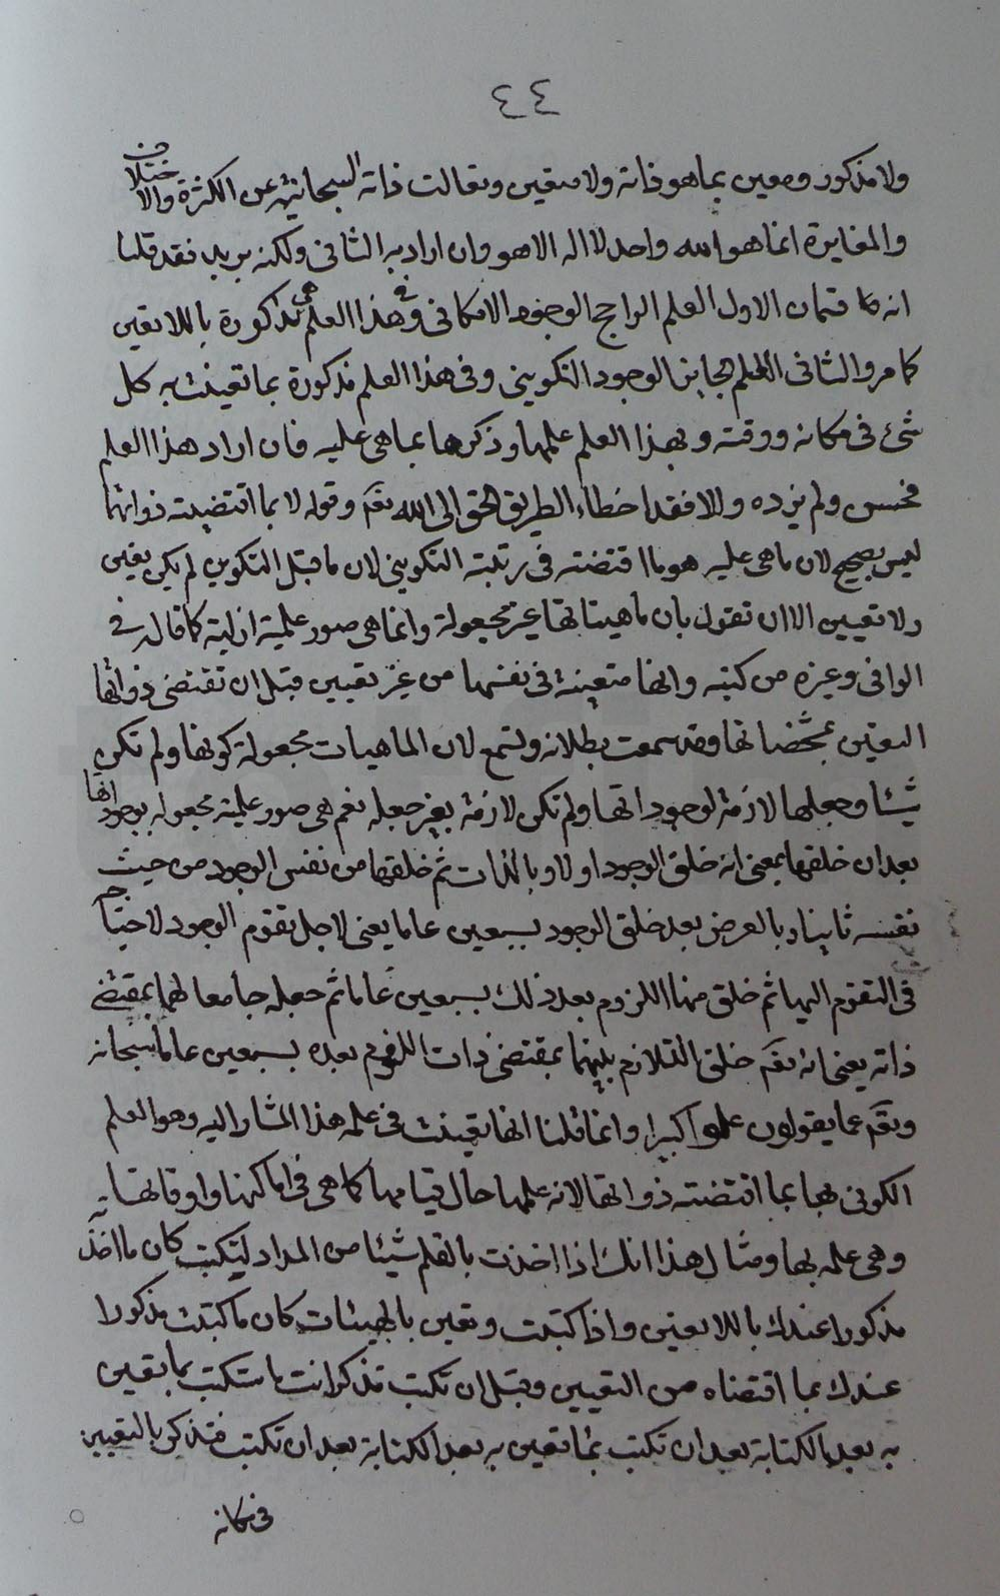 ٤٤
ولا مذكور ومعين بما هو ذاته ولا متعين وتعالت ذاته السبحانية عن الكثرة والاختلاف
والمغايرة انما هو الله واحد لا اله الا هو وان اراد به الثانى ولكنه يريد فقد قلنا
انه قسمان الاول العلم الراجح الوجود الامكانى وفى هذا العلم هى مذكورة باللا تعين
كما مر والثانى العلم الجايز الوجود التكوينى وفى هذا العلم مذكورة بما تعينت به كل
شئ فى مكانه ووقته وبهذا العلم علمها وذكرها بما هى عليه فان اراد هذا العلم
فحسن ولم يرده والا فقد اخطاء الطريق الحق الى الله تعم وقوله لا بما اقتضيته ذواتها
ليس بصحيح لان ما هى عليه هو ما اقتضته فى رتبته التكوينى لان ما قبل التكوين لم يكن تعين
ولا تعيين الا ان تقول بان ماهيتاتها غير مجعولة وانما هى صور علمية ازلية كما قال فى
الوافى وغيره من كتبه وانها متعينة فى نفسها من غير تعيين قبل ان تقتضى ذواتها
التعين بمشخصاتها وقد سمعت بطلانه وتسمع لان الماهيات مجعولة كونها ولم تكن
شيئا وجعلها لازمة لوجوداتها ولم تكن لازمة بغير جعله نعم هى صور علمية مجعوله بوجوداتها
بعد ان خلقها بمعنى انه خلق الوجود اولا وبالذات ثم خلقها من نفس الوجود من حيث
نفسه ثانيا وبالعرض بعد خلق الوجود بسبعين عاما يعنى لاجل تقوم الوجود لاحتياجه
فى التقوم اليها ثم خلق منها اللزوم بعد ذلك بسبعين عاما ثم جعله جامعا لهما بمقتضى
ذاته يعنى انه تعم خلق التلازم بينهما بمقتضى ذات اللزوم بعده بسبعين عاما سبحانه
وتعم عما يقولون علوا كبيرا وانما قلنا انها تعينت فى علمه هذا المشار اليه وهو العلم
الكونى بها بما اقتضته ذواتها لانه علمها حال قيامها كما هى فى اماكنها واوقاتها به
وهى علمه بها ومثال هذا انك اذا اخذت بالقلم شيئا من المداد ليكتب كان ما اخذ
مذكورا عندك باللا تعين واذا كتبت وتعين بالهيئات كان ما كتبت مذكورا
عندك بما اقتضاه من التعيين وقبل ان تكتب تذكر انت ما ستكتب بما تعين
به بعد الكتابة بعد ان تكتب بما تعين به بعد الكتابة بعد ان تكتب فتذكر بالتعيين
فى مكانه